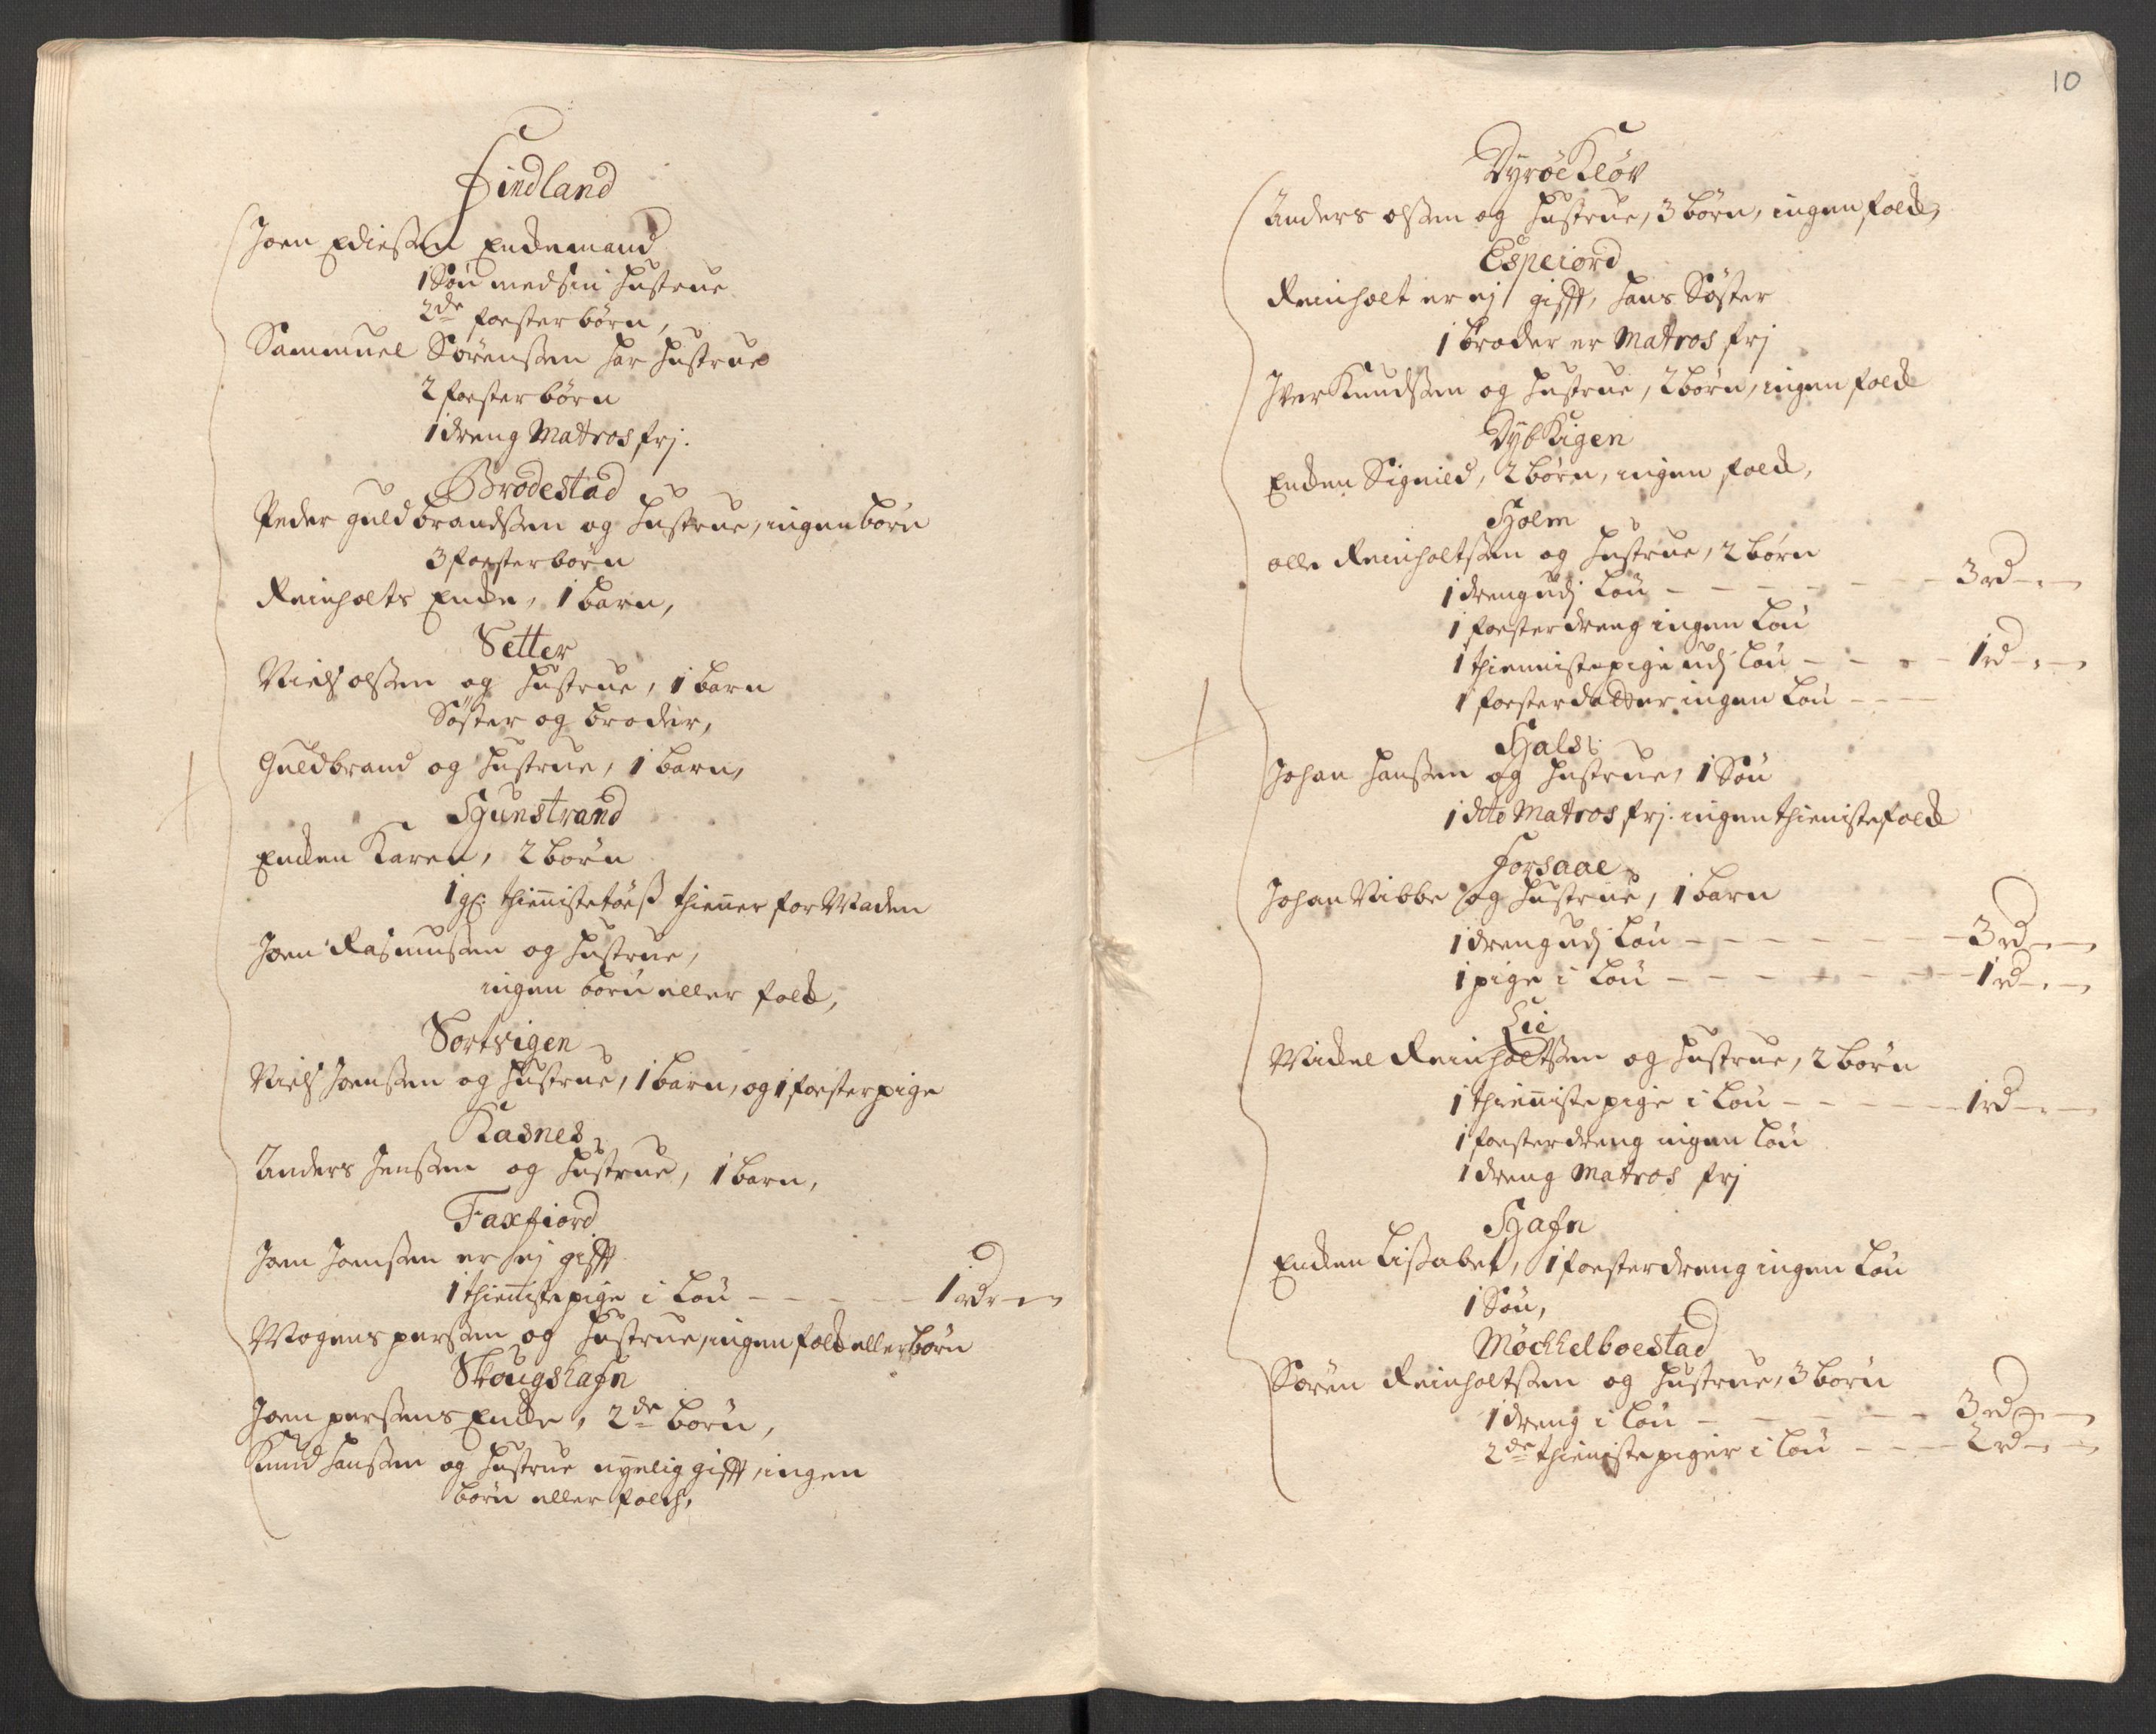 Findland
Joen Ediessen Enckemand
1 Søn med sin hustrue
2de fosterbørn,
Sammuel Sørensen har hustrue
2 fosterbørn
1 dreng Matros frj.
Brodestad
Peder Guldbrandssen og hustrue, ingen børn
3 fosterbørn
Reinholts Encke, 1 barn,
Setter
Niels olssen og hustrue, 1 barn
Søster og broder,
Guldbrand og hustrue, 1 barn,
Hgunstrand
Encken Karen, 2 børn
1 gl: thienistetøes thiener for Maden
Joen Rasmussen og hustrue,
ingen børn eller folck,
Sortvigen
Niels Joenssen og hustrue, 1 barn, og 1 fosterpige
Kasnes
Anders Jenssen og hustrue, 1 barn,
Faxfiord
Joen Joenssen er ej gifft
1 thienistepige i Løn - - - - - 1 rdr - -
Mogens perssen og hustrue, ingen folck eller børn
Skougshafn
Joen perssens Encke, 2de børn,
Knud hanssen og hustrue nyelig gifft, ingen
børn eller folch,
10
Dyrøe Kløv
Anders olssen og hustrue, 3 børn, ingen folck,
Espeiord
Reinholt er ej gifft, hans Søster
1 broder er Matros frj
Iver Knudssen og hustrue, 2 børn, ingen folck
Dybvigen
Encken Signild, 2 børn, ingen folck,
Holm
olle Reinholtssen og hustrue, 2 børn
1 dreng udj Løn - - - - - - 3 rd - -
1 fosterdreng ingen Løn
1 thienistepige udj løn - - - - 1 rd - -
1 fosterdatter ingen Løn - - -
Hals
Johan hanssen og hustrue, 1 Søn
1 dito Matros frj: ingen thienistefolck
Forsaae
Johan Vibbe og hustrue, 1 barn
1 dreng udj Løn - - - - - - 3 rd - -
1 pige i Løn - - - - - - 1 rd - -
Lie
Mickel Reinholtssen og hustrue, 2 børn
1 thienistepige i Løn - - - - - 1 rd - -
1 fosterdreng ingen løn
1 dreng Matros frj
Hafn
Encken Lissabet, 1 fosterdreng ingen Løn
1 Søn,
Møchkelboestad
Søren Reinholtssen og hustrue, 3 børn
1 dreng i løn - - - - - - 3 rd - -
2de thienistepiger i løn - - - - 2 rd - -